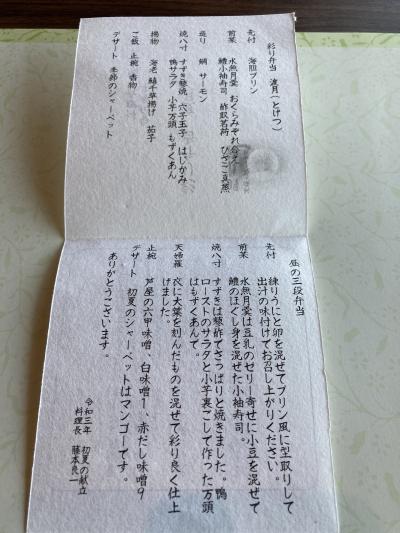 彩り弁当　渡月(とげつ)
先付　海胆プリン
前菜　水無月羹　おくらみぞれ合え
鱧小袖寿司　酢取茗荷　ひさご真薯
造り　鯛　サーモン
焼八寸　すずき蓼焼　穴子玉子　はじかみ
鴨サラダ　小芋万頭　もずくあん
揚物　海老　鱚千草揚げ　茄子
ご飯　止椀　香物
デザート　季節のシャーベット
昼の三段弁当
先付　練りうにと卵を混ぜてプリン風に型取りして
出汁の味付けでお召し上がりください。
前菜　水無月羹は豆乳のゼリー寄せに小豆を混ぜて
鱧のほぐし身を混ぜた小袖寿司。
焼八寸　すずきは蓼酢でさっぱりと焼きました。鴨
ローストのサラダと小芋裏ごして作った万頭
はもずくあんで。
天婦羅　衣に大葉を刻んだものを混ぜて彩り良く仕上
げました。
止椀　芦屋の六甲味噌、白味噌1、赤だし味噌9
デザート　初夏のシャーベットはマンゴーです。
ありがとうございます。
令和三年　初夏の献立
料理長　藤本良一